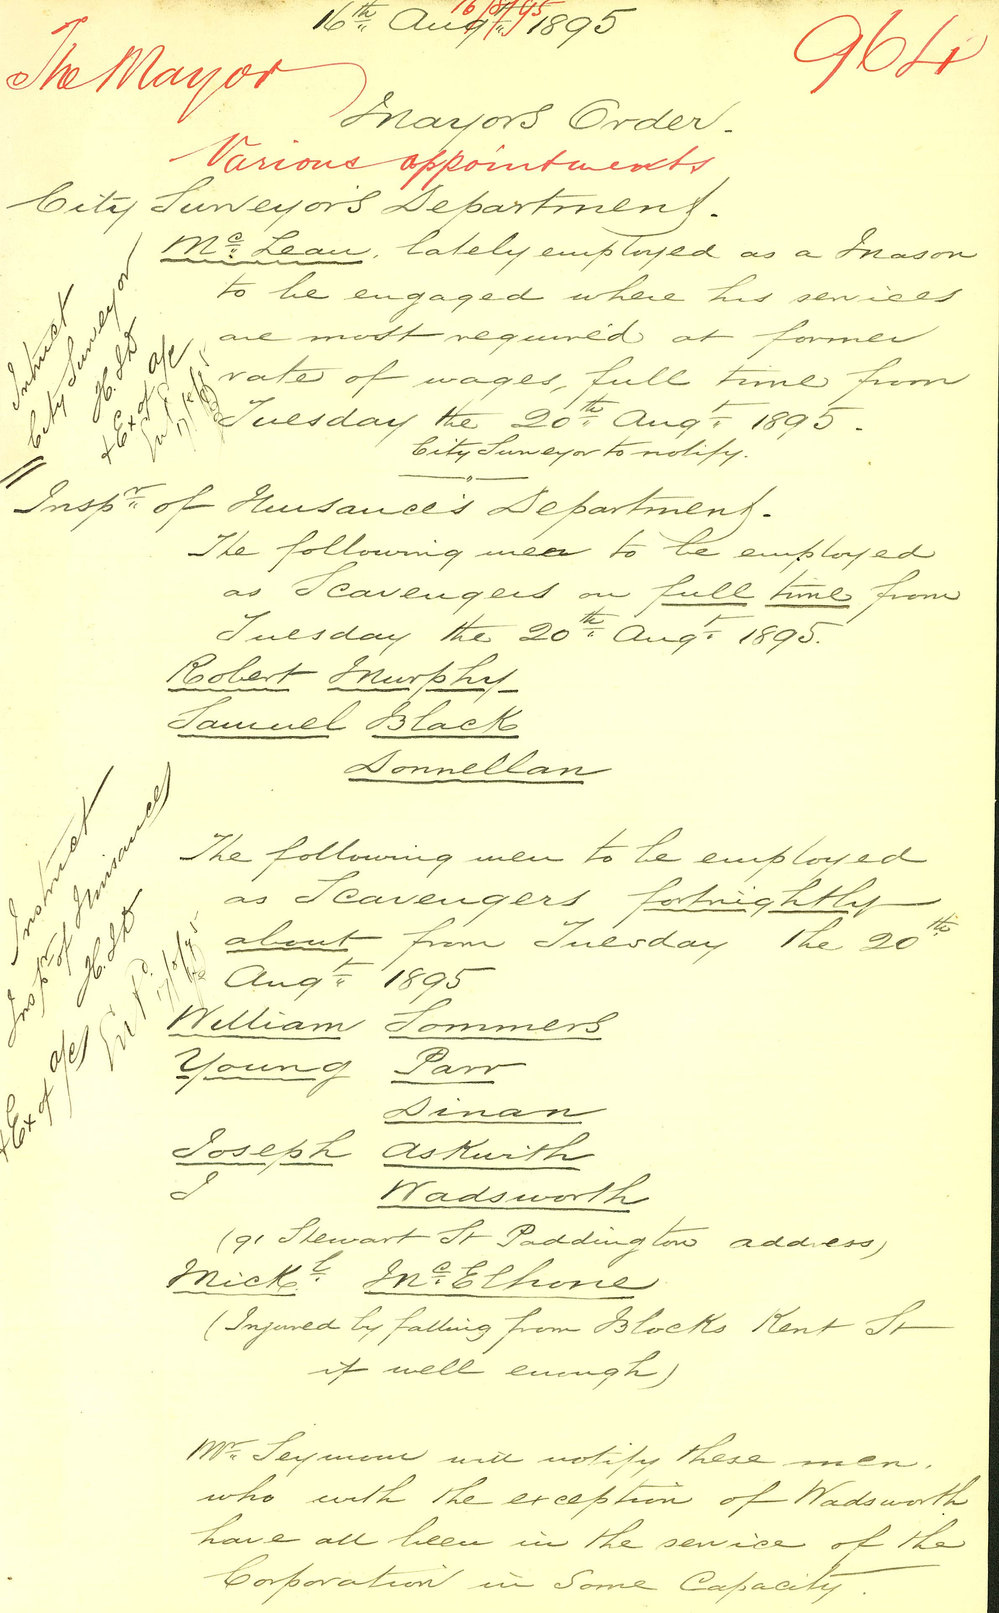 16th Augt 1895
16/8/95
The Mayor
964
Mayors Order.
Various appointments
City Surveyor's Department.
McLean, lately employed as a Mason
to be engaged where his services
are most required at former
rate of wages, full time from
Tuesday the 20th Augt 1895.
City Surveyor to notify.
Instruct
City Surveyor
& Ex of a/c
17/8/95
Inspr of Nuisance's Department.
The following men to be employed
as Scavengers on full time from
Tuesday the 20th Augt 1895.
Robert Murphy
Samuel Black
Donnellan
The following men to be employed
as Scavengers fortnightly
about from Tuesday the 20th
Augt 1895
Instruct
Inspr of Nuisances
& Ex of a/cs
17/8/95
William Sommers
Young Parr
Dinan
Joseph Askwith
J Wadsworth
(91 Stewart St Paddington address)
Mickl McElhone
(Injured by falling from Blocks Kent St
if well enough)
Mr Seymour will notify these men.
who with the exception of Wadsworth
have all been in the service of the
Corporation in some Capacity.